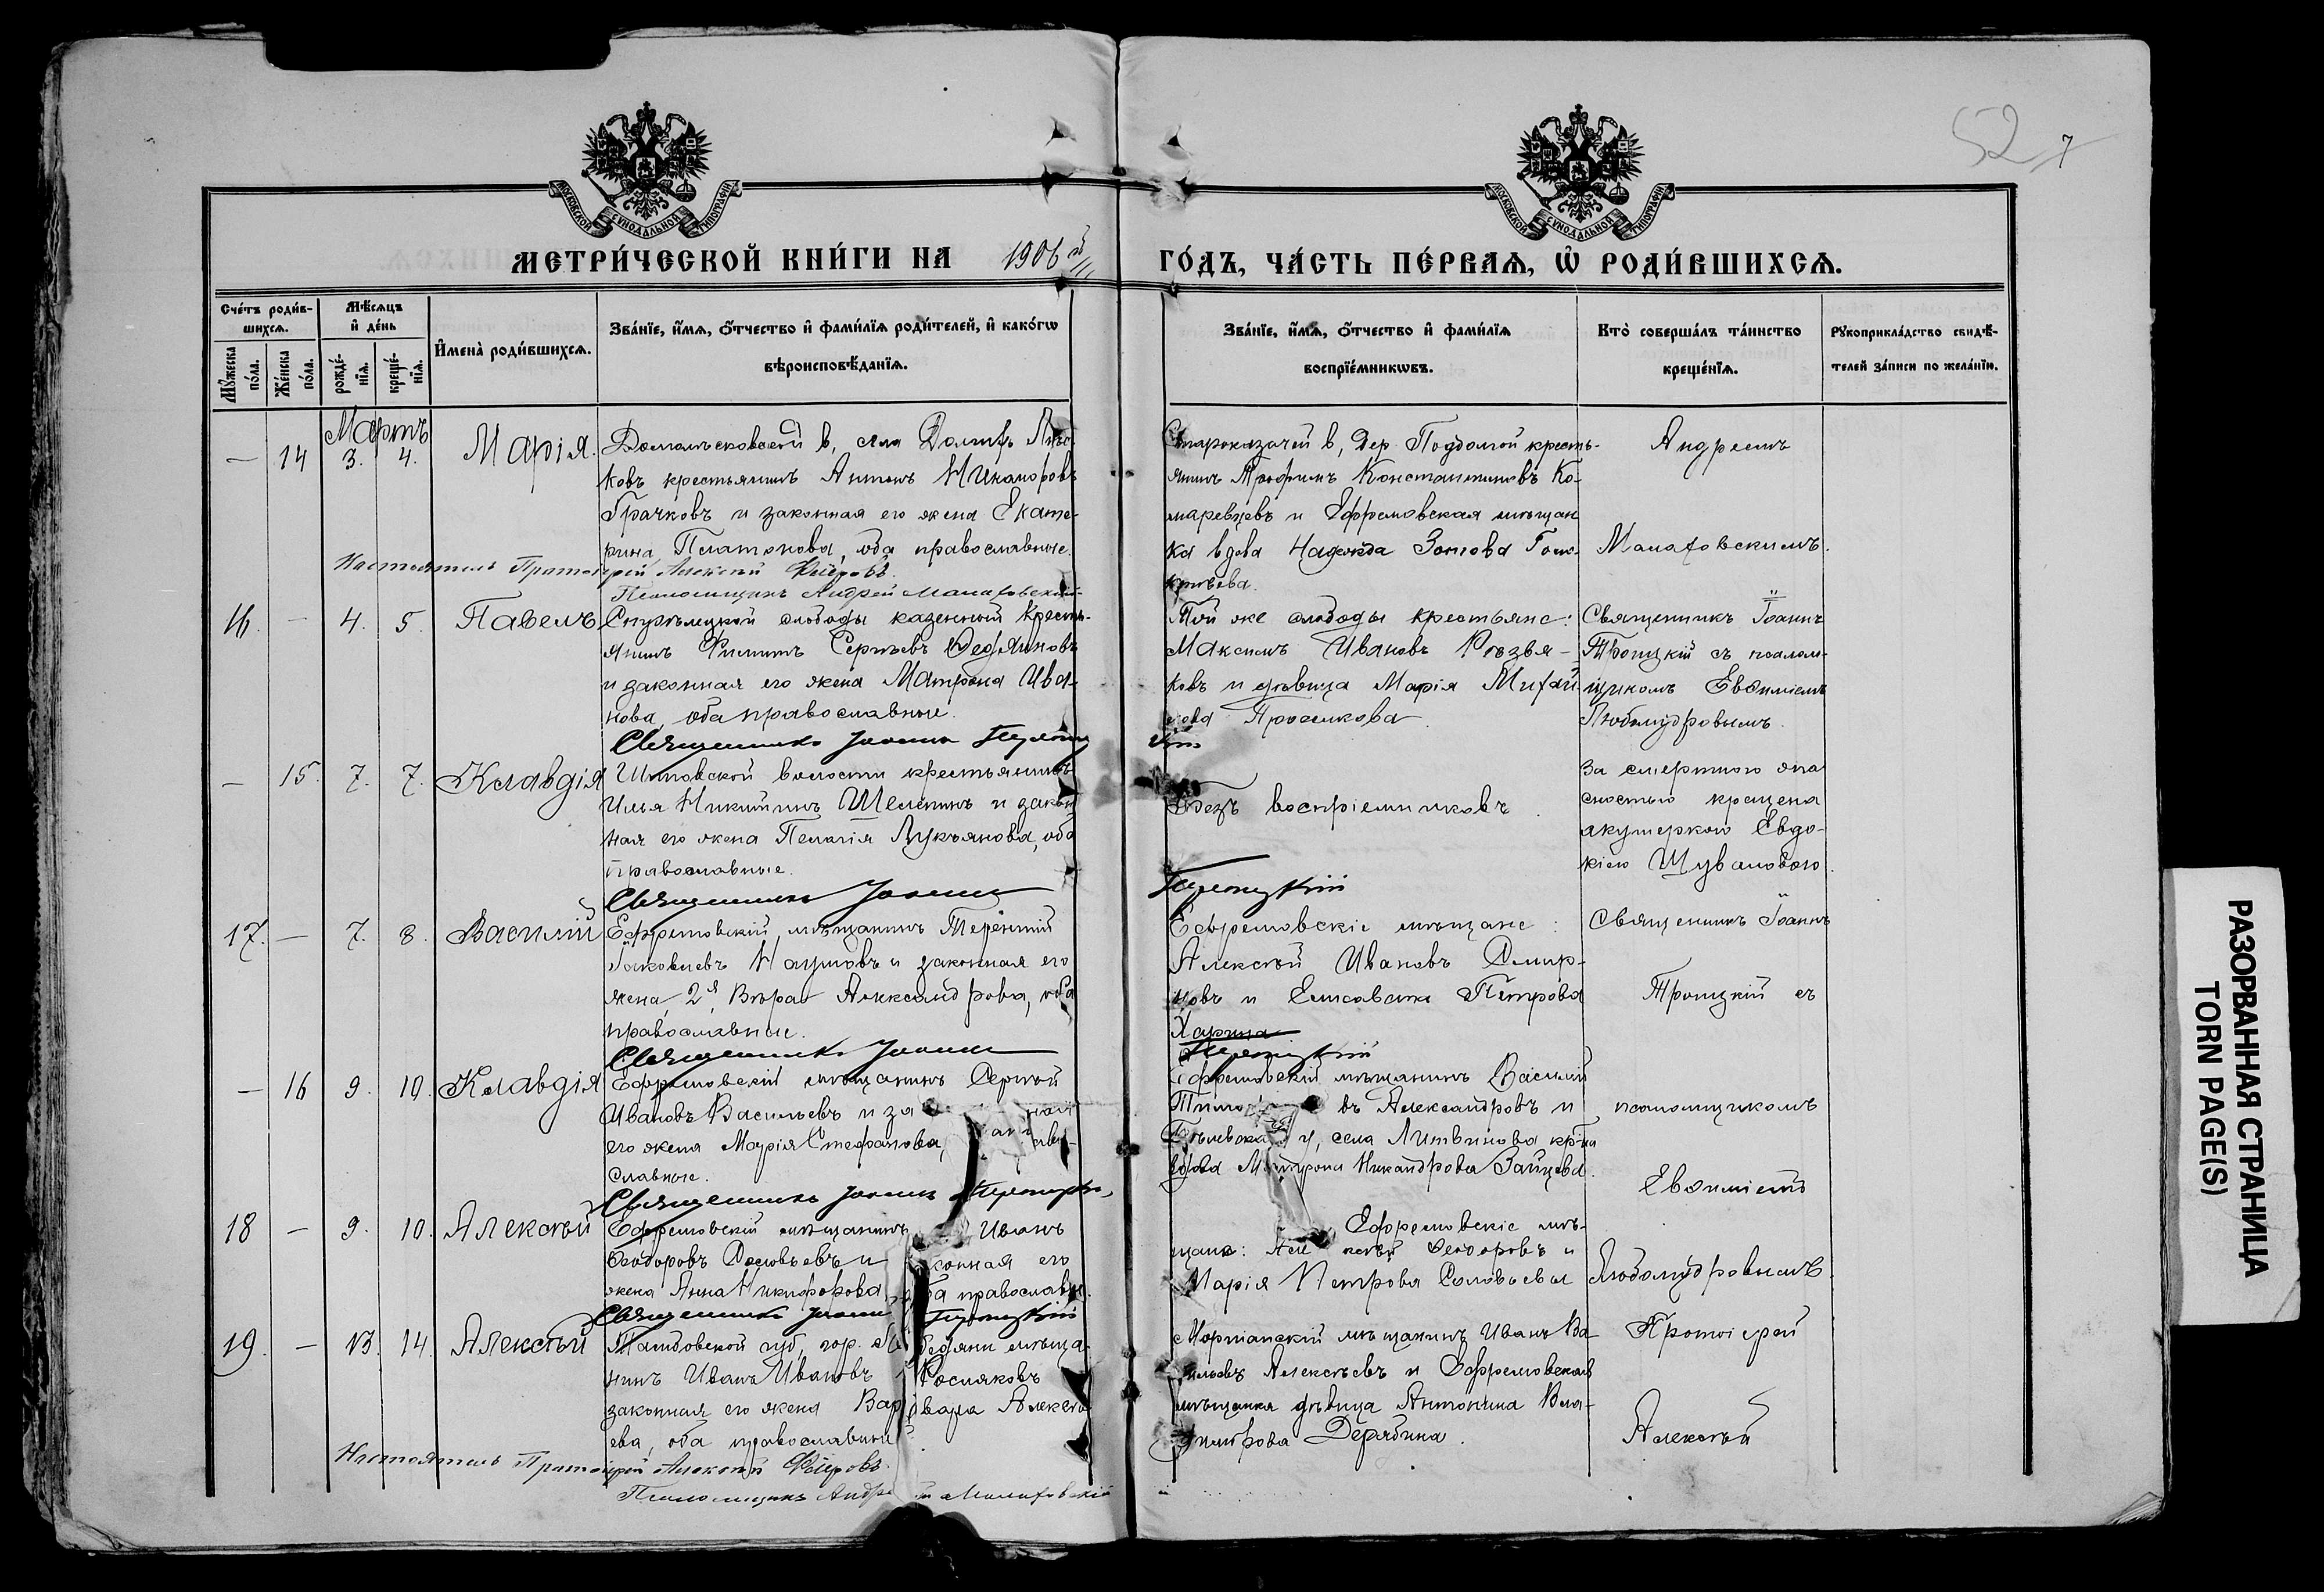 52 7
МОСКОВСКОЙ СѴНОДАЛЬНОЙ ТИПОГРАФІИ
МОСКОВСКОЙ СѴНОДАЛЬНОЙ ТИПОГРАФІИ
МЕТРИ́ЧЕСКОЙ КНИ́ГИ НА 1906й ГО́ДЪ, ЧА́СТЬ ПЕ́РВАѦ, Ѡ҆ РОДИ́ВШИХСѦ.
Сче́тъ роди́в-
шихсѧ.
Мꙋ́жеска по́ла.
Же́нска по́ла.
Мѣ́сѧцъ и҆ де́нь
рожде́-нїѧ.
креще́-нїѧ.
И҆мена̀ роди́вшихсѧ.
Зва́нїе, и҆́мѧ, ѻ҆́тчество и҆ фами́лїѧ роди́телей, и҆ како́гѡ
вѣроисповѣ́данїѧ.
Зва́нїе, и҆́мѧ, ѻ҆́тчество и҆ фами́лїѧ
воспрїе́мникѡвъ.
Кто̀ соверша́лъ та́инство
креще́нїѧ.
Рꙋкоприкла́дство свидѣ́-
телей за́писи по жела́нїю.
Мартъ
— 14 3. 4. Марія.
ковъ крестьянинъ Антонъ Никаноровъ
Грачковъ и законная его жена Екате-
рина Платонова, оба православные.
Настоятель Протоіерей Алексѣй
Псаломщикъ Андрей Малаховскій
Староказачей в, дер. Поддолгой кресть-
янинъ Трофимъ Константиновъ Ко-
маревцевъ и Ефремовская мѣщан
ка вдова Надежда Зотова
Андреемъ
Малаховскимъ.
16. — 4. 5. Павелъ
слободы казенный кресть-
янинъ Филиппъ Сергѣевъ
и законная его жена Матрона Ива-
нова, оба православные.
Священникъ Іоаннъ Троицкій
Той же слободы крестьяне:
Максимъ Ивановъ
ковъ и дѣвица Марія Михай-
лова
Священникъ Іоаннъ
Троицкій съ псалом-
щикомъ Евѳиміемъ
Любомудровымъ.
— 15. 7. 7. Клавдія
Шиповской волости крестьянинъ
Илья Никитинъ Шеленинъ и закон
ная его жена Пелагія Лукьянова, оба
православные.
Священникъ Іоаннъ Троицкій
Безъ воспріемниковъ.
За смертною опа
сностью крещена
акушеркою Евдо-
кіею Шуваловою.
17. — 7. 8. Василій
Ефремовскій мѣщанинъ Терентій
Іаковлевъ Наумовъ и законная его
жена, 2я, Вѣра Александрова, оба
православные.
Священникъ Іоаннъ Троицкій
Ефремовскіе мѣщане:
Алексѣй Ивановъ Смир-
новъ и Елисавета Петрова
Священникъ Іоаннъ
Троицкій съ
— 16 9. 10. Клавдія
Ефремовскій мѣщанинъ Сергѣй
Ивановъ Васильевъ и за ная
его жена Марія Стефанова,
славные.
Священникъ Іоаннъ Троицкій
Ефремовскій мѣщанинъ Василій
въ Александровъ и
у, села Литвинова кр-ка
вдова Матрона Никандрова Зайцева.
псаломщикомъ
Евѳиміемъ
18 — 9. 10. Алексѣй
Ефремовскій мѣщанинъ Иванъ
Ѳеодоровъ Соловьевъ и конная его
жена Анна Никифорова, оба православн.
Священникъ Іоаннъ Троицкій
Ефремовскіе мѣ-
щане: Алексѣй Ѳеодоровъ и
Марія Петрова Соловьевы
Любомудровымъ.
19. — 13. 14. Алексѣй
Тамбовской губ, гор. Лебедяни мѣща-
нинъ Иванъ Ивановъ Росляковъ
законная его жена Варвара Алексѣ
ева, оба православны
Настоятель Протоіерей Алексѣй
Псаломщикъ Андрей Малаховскій
Моршанскій мѣщанинъ Иванъ Ва-
сильевъ Алексѣевъ и Ефремовская
мѣщанка дѣвица Антонина Вла-
димірова Дерябина.
Протоіерей
Алексѣй
РАЗОРВАННАЯ СТРАНИЦА
TORN PAGE(S)